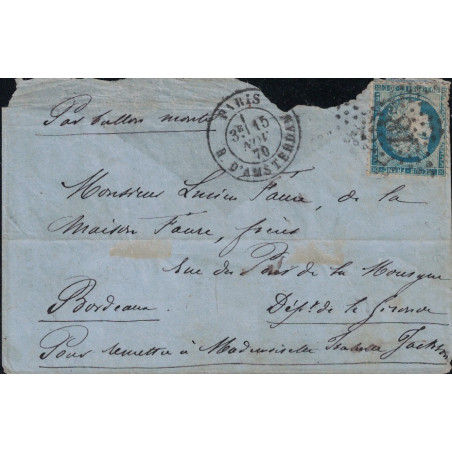 Par ballon monté
PARIS
1
3E 15
NOV.
70
R. D'AMSTERDAM
Monsieur Lucien Faure, de la
Maison Faure, frères
rue du Pont de la Mousque
Bordeaux
Dépt. de la Gironde
Pour remettre à Mademoiselle Isabelle Jackson